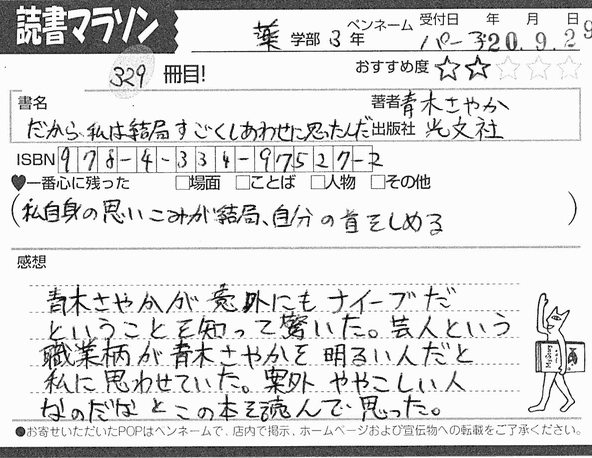 読書マラソン
薬 学部 3 年 ペンネーム 受付日 年 月 日
パー子 20.9.29
329 冊目! おすすめ度 ☆☆☆☆☆
書名 著者 青木さやか
だから、私は結局すごくしあわせに思ったんだ 出版社 光文社
ISBN 978-4-334-97527-2
♥一番心に残った □場面 □ことば □人物 □その他
(私自身の思いこみが結局、自分の首をしめる)
感想
青木さやかが意外にもナイーブだ
ということを知って驚いた。芸人という
職業柄が青木さやかを明るい人だと
私に思わせていた。案外ややこしい人
なのだなとこの本を読んで思った。
●お寄せいただいたPOPはペンネームで、店内で掲示、ホームページおよび宣伝物への転載をご了承ください。